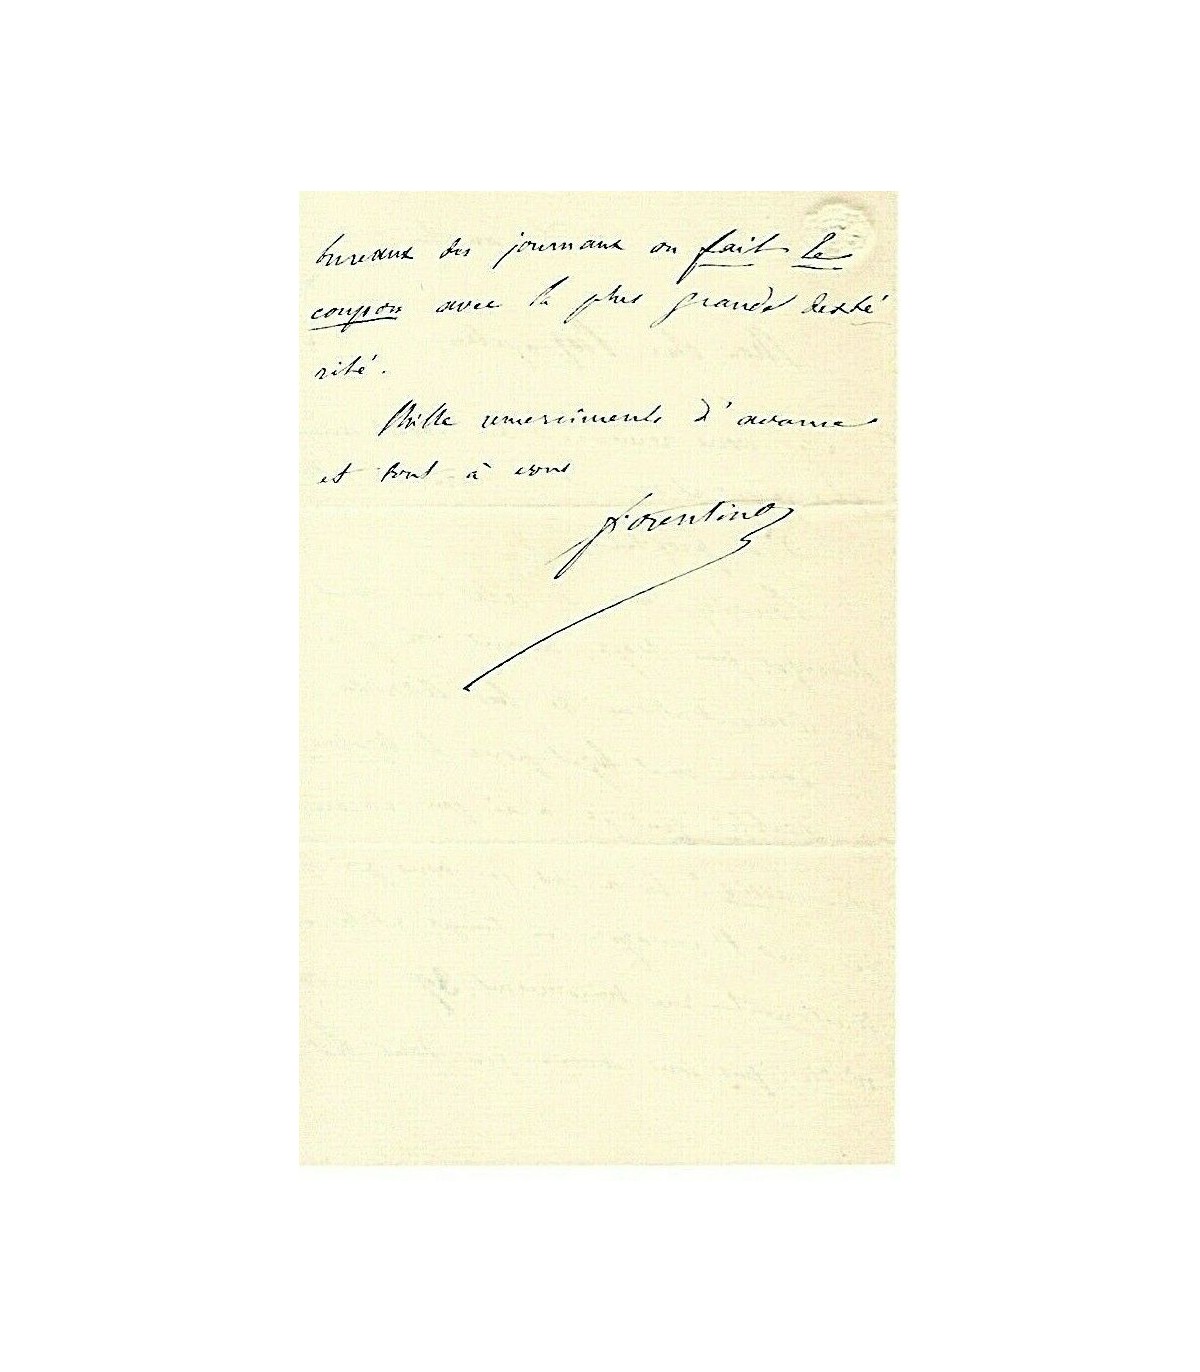 bureaux des journaux on fait le
coupon avec la plus grande dexté
rité.
Mille remerciments d'avance
et tout à vous
Fiorentino